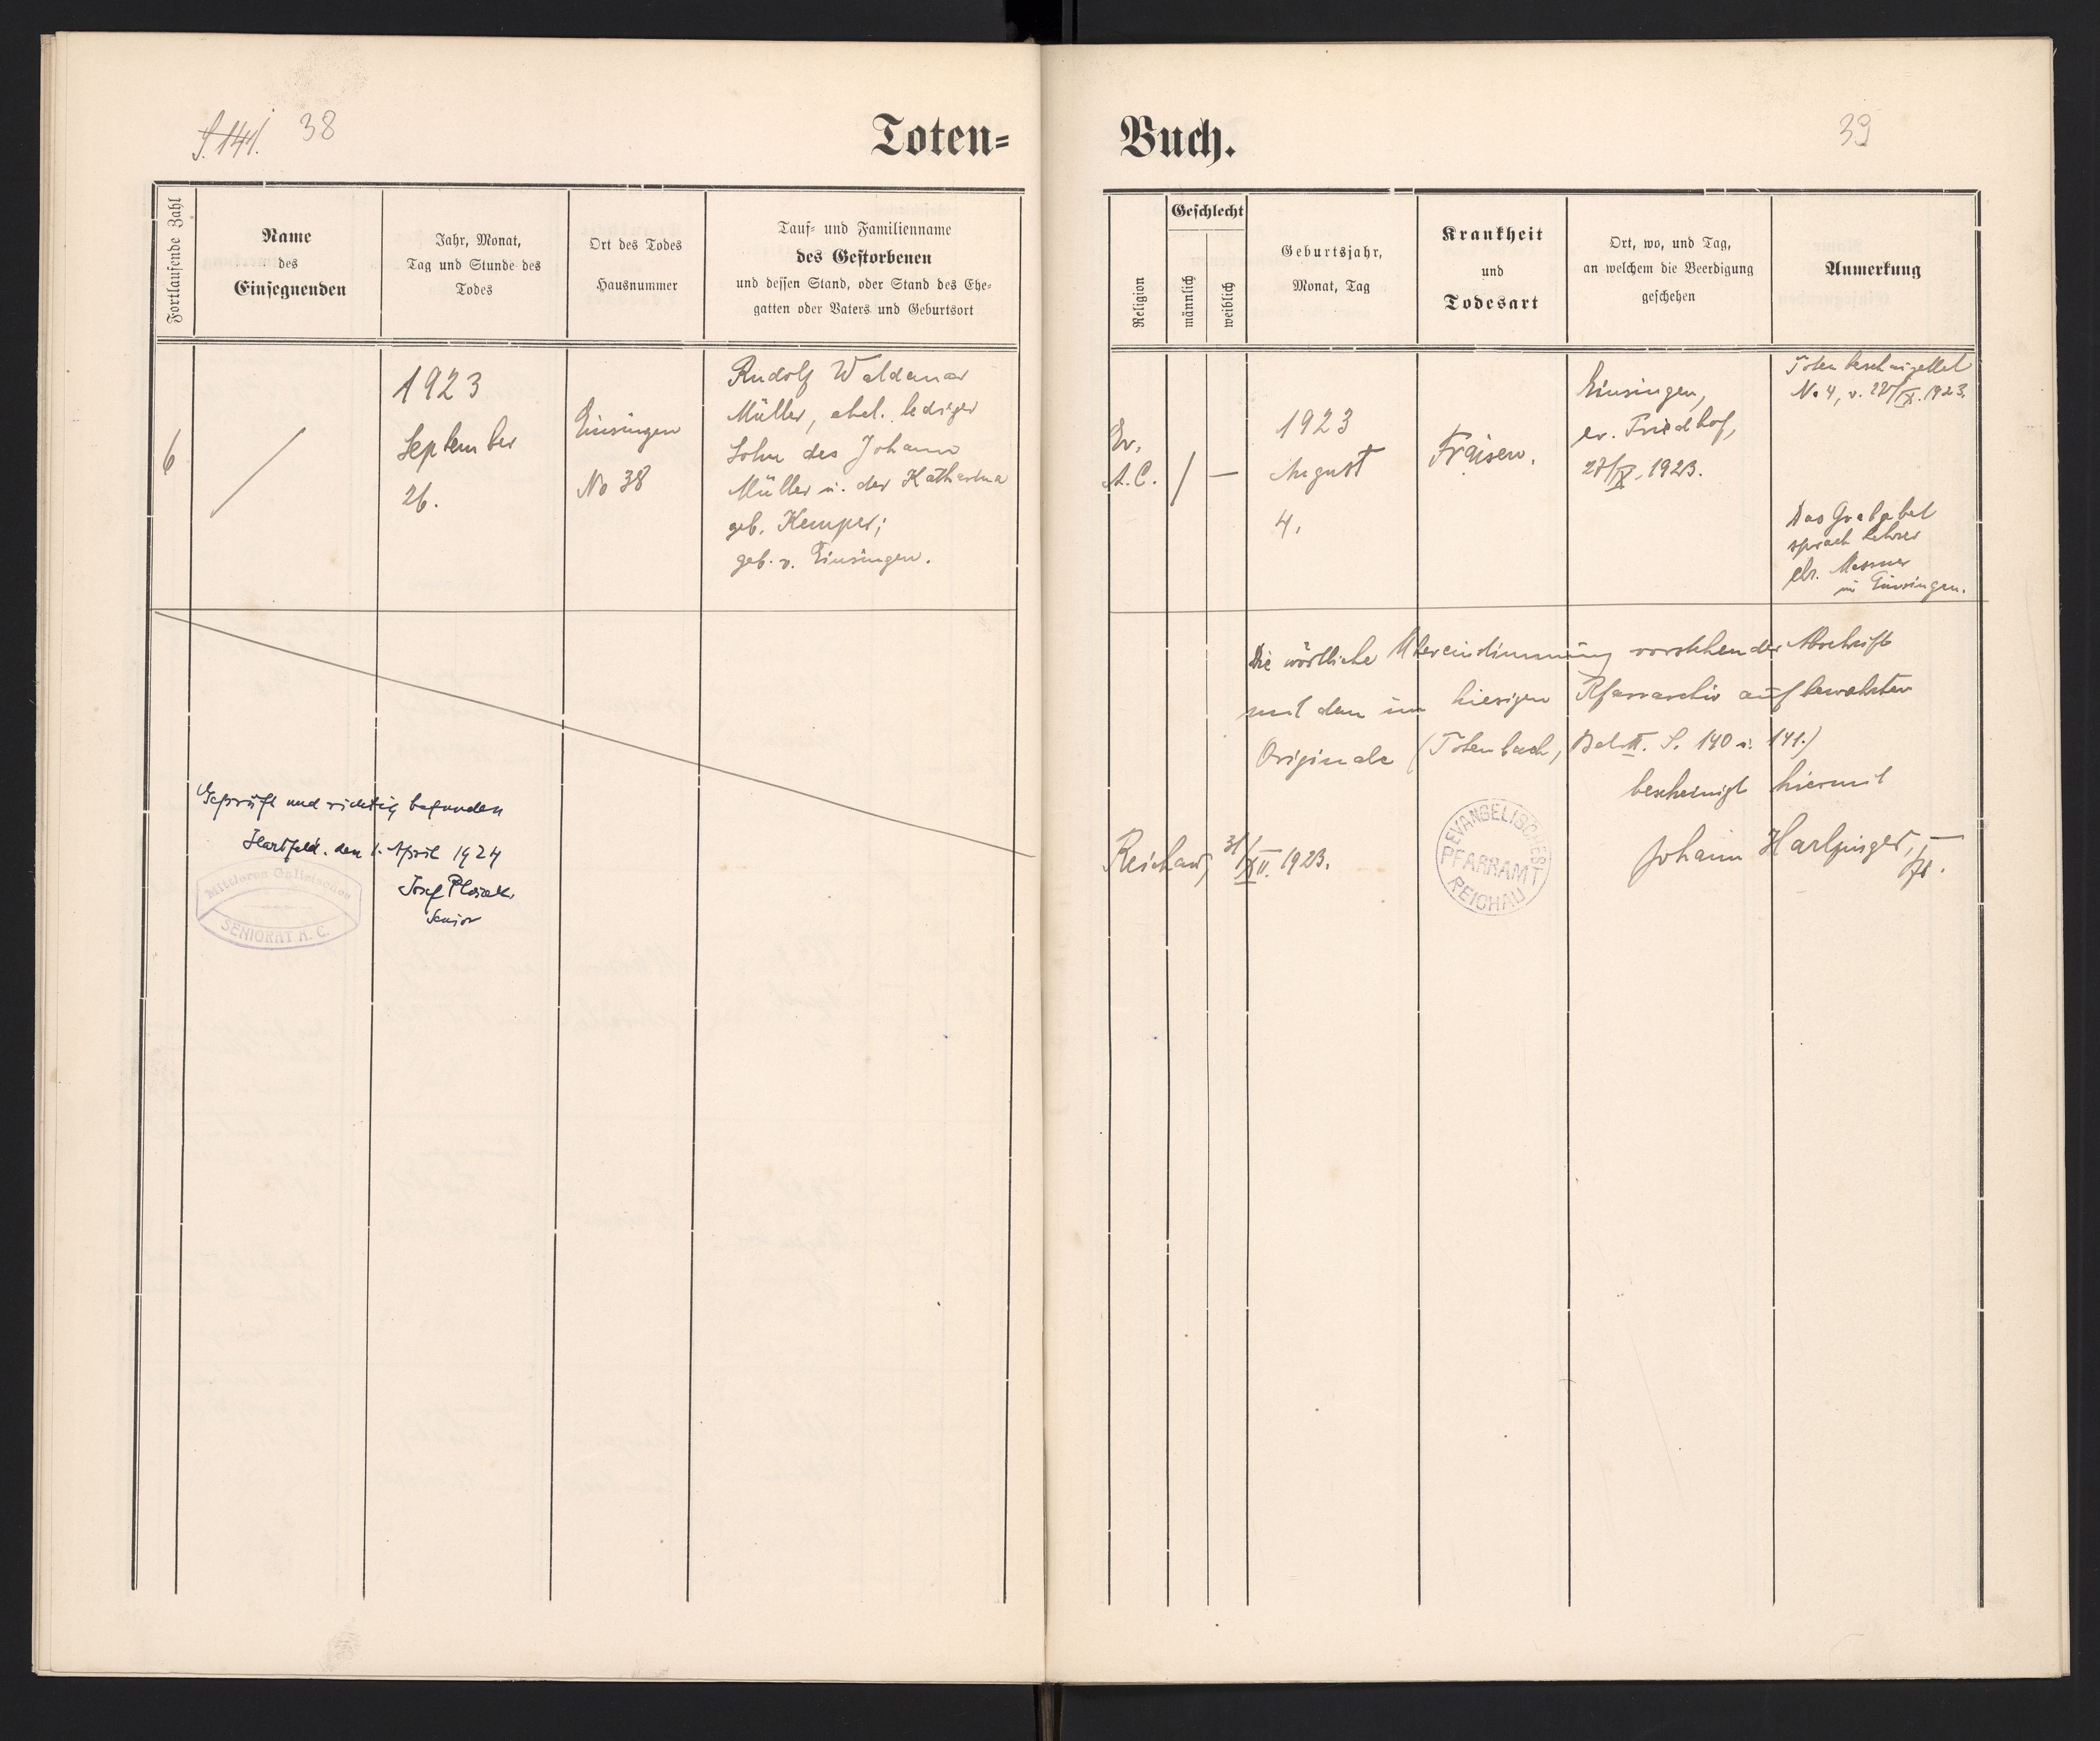 S. 141. 38
Toten=
Buch.
39
Fortlaufende Zahl
Name
des
Einsegnenden
Jahr, Monat,
Tag und Stunde des
Todes
Ort des Todes
Hausnummer
Tauf= und Familienname
des Gestorbenen
und dessen Stand, oder Stand des Ehe=
gatten oder Vaters und Geburtsort
Religion
Geschlecht
männlich
weiblich
Geburtsjahr,
Monat, Tag
Krankheit
und
Todesart
Ort, wo, und Tag,
an welchem die Beerdigung
geschehen
Anmerkung
6
1923
September
26.
Einsingen
No 38
Rudolf Waldemar
Müller, ehel. lediger
Sohn des Johann
Müller u. der Katharina
geb. Kemper;
geb. v. Einsingen.
Ev.
A.C.
/
—
1923
August
4.
Fraisen.
Einsingen,
ev. Friedhof,
27/IX. 1923.
Totenbeschauzettel
No 4, v. 27/IX. 1923.
Das Grabgebet
sprach Lehrer
Messner
in Einsingen.
Die wörtliche Übereinstimmung vorstehender Abschrift
mit dem im hiesigen Pfarrarchiv aufbewahrten
Originale (Totenbuch, Bd. II. S. 140 u. 141.)
bescheinigt hiermit
Reichau, 31/XII. 1923.
EVANGELISCHES
PFARRAMT
REICHAU
Johann Harlfinger,
Geprüft und richtig befunden
Hartfeld. den 1. April 1924
Josef
Senior
Mittleres Galizisches
SENIORAT A. C.